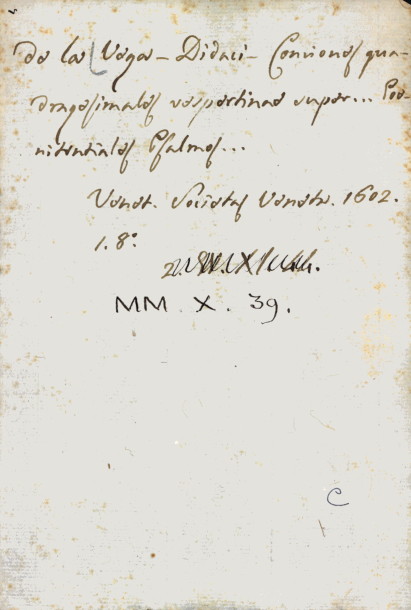 de la Vega - Didaci - Conciones qua-
dragesimales vespertinae super... Poe-
nitentiales Psalmos...
Venet. Societas Venet. 1602.
1. 8º.
MM. X. 39.
C